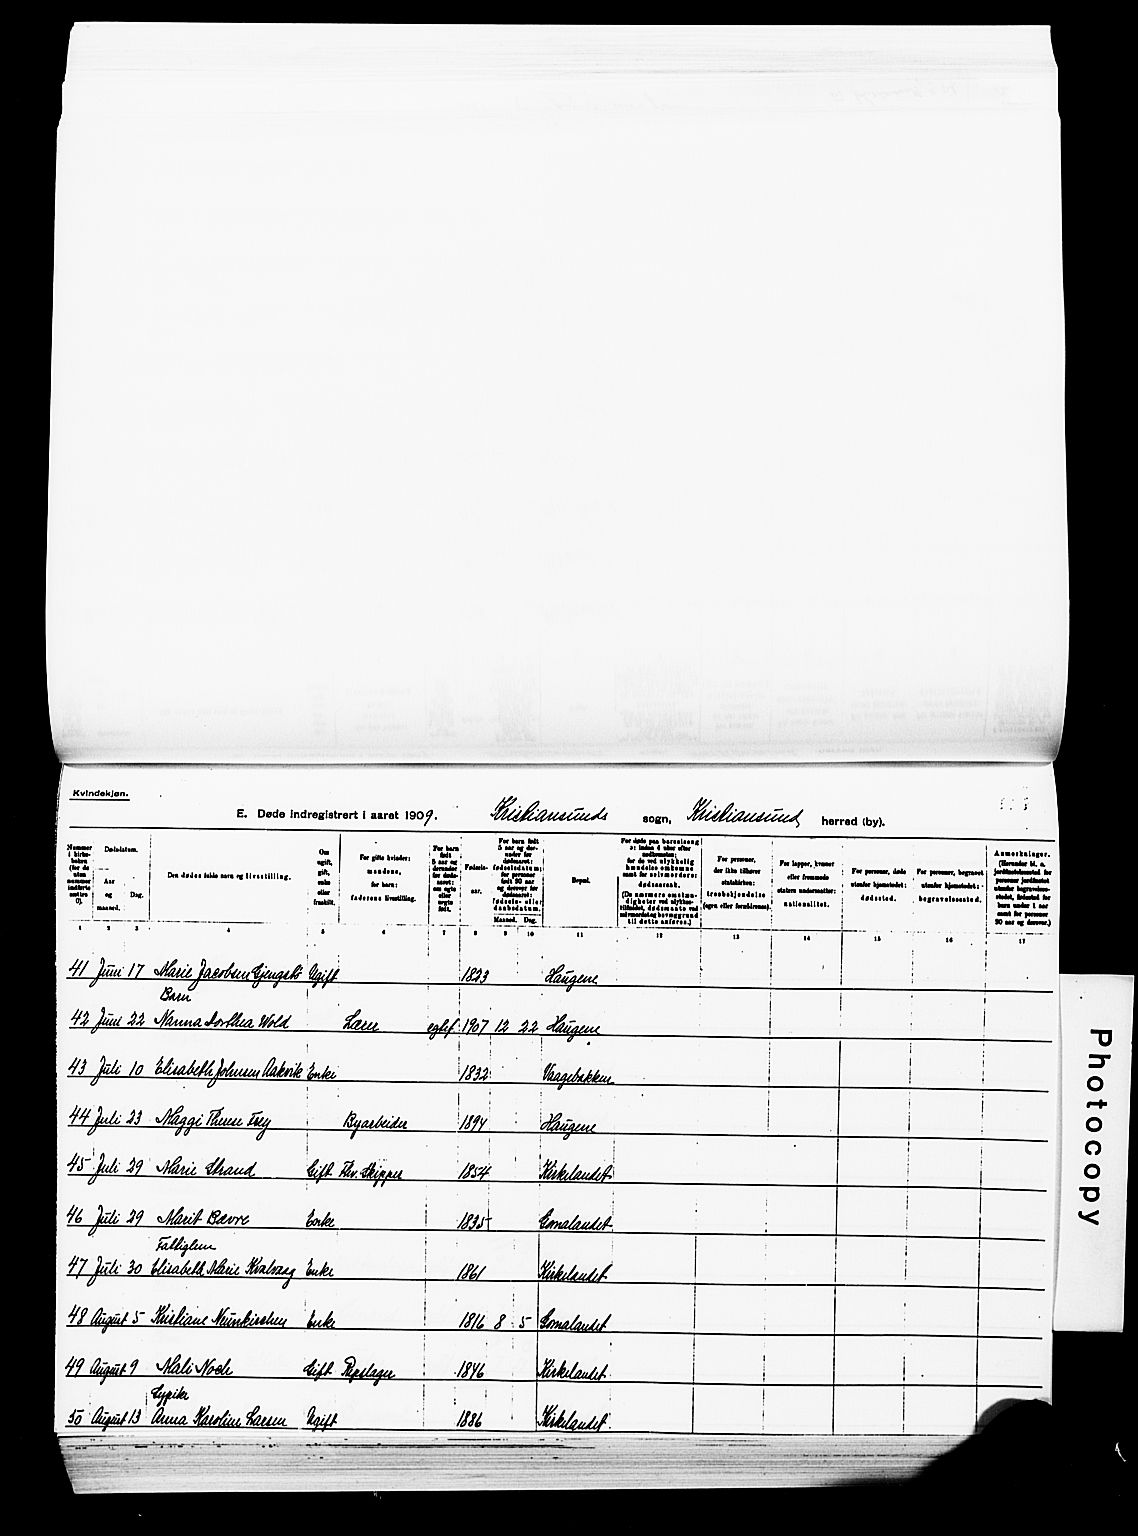 Kvindekjøn.
E. Døde indregistrert i aaret 1909. Kristiansunds sogn, Kristiansund herred (by).
Nummer i kirkeboken (for de uten nummer indførte sættes 0).
Dødsdatum.
Aar og maaned.
Dag.
Den dødes fulde navn og livsstilling.
Om ugift, gift, enke eller fraskilt.
For gifte kvinder: mandens, for barn: faderens livsstilling.
For barn født 5 aar og derunder før dødsaaret: om egte eller uegte født.
Fødselsaar.
For barn født 5 aar og derunder før dødsaaret: fødselsdatum; for personer født 90 aar og derover før dødsaaret: fødsels- eller daabsdatum.
Maaned. Dag.
Bopæl.
For personer, der ikke tilhører statskirken: trosbekjendelse (egen eller forældrenes).
For lapper, kvæner eller fremmede staters undersaatter: nationalitet.
For personer, døde utenfor hjemstedet: dødssted.
For personer, begravet utenfor hjemstedet: begravelsessted.
1 2 3 4 5 6 7 8 9 10 11 12 13 14 15 16 17
41 Juni 17 Marie Jacobsen Gjengstø Ugift 1823 Haugene
Barn
42 Juni 22 Nanna Dorthea Wold Lærer egtef. 1907 12 22 Haugene
43 Juli 10 Elisabeth Johnsen Aakvik Enke 1832 Vaagebakken
44 Juli 23 Maggi Therese Frey Byarbeider 1894 Haugene
45 Juli 29 Marie Strand Gift Fhv. Skipper 1854 Kirkelandet
46 Juli 29 Marit Bævre Enke 1835 Gomalandet
Fattiglem
47 Juli 30 Elisabeth Marie Kvalvaag Enke 1861 Kirkelandet
48 August 5 Kristiane Neunkirchen Enke 1816 8 5 Gomalandet
49 August 9 Mali Gift Repslager 1846 Kirkelandet
Sypike
50 August 13 Anna Karoline Larsen Ugift 1886 Kirkelandet
Photocopy